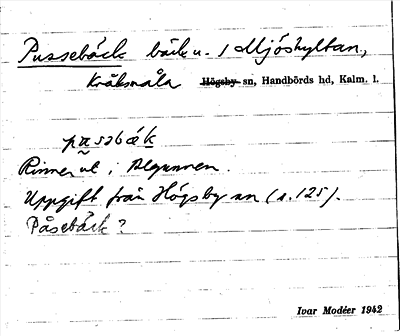 Pussebäck bäck u. / Mjöshyltan,
Kråksmåla Högsby sn, Handbörds hd, Kalm. l.
pasəbäk
Rinner ut i Algunnen.
Uppgift från Högsby sn (s. 125).
Påsebäck?
Ivar Modéer 1942